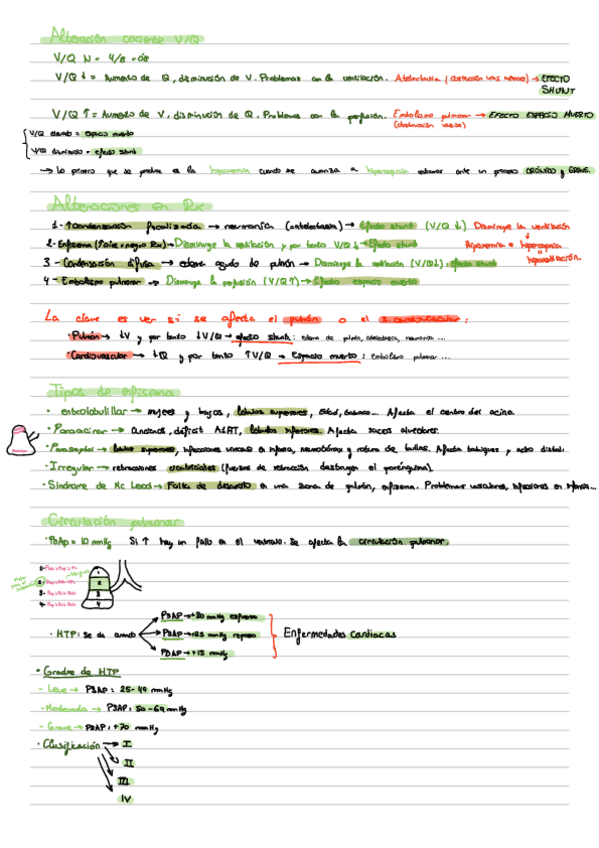 Alteración cociente V/Q
V/Q N = 4/5 = 0,8
V/Q ↓ = Aumento de Q, disminución de V. Problemas con la ventilación. Atelectasia → EFECTO
SHUNT
V/Q ↑ = Aumento de V, disminución de Q. Problemas con la perfusión. Embolismo pulmonar → EFECTO ESPACIO MUERTO
(obstrucción vascular)
V/Q elevado = espacio muerto
V/Q disminuido = efecto shunt
→ Lo primero que se produce es la hipoxemia cuando se avanza a hipercapnia estamos ante un proceso CRÓNICO y GRAVE.
Alteraciones en Rx
1- ↑Condensación focalizada → neumonía (antelectasia) → Efecto shunt (V/Q ↓) Disminuye la ventilación
2- Enfisema (Aire = negro Rx) → Disminuye la ventilación y por tanto V/Q ↓ → Efecto shunt Hipoxemia e hipercapnia
3 - Condensación difusa → edema agudo de pulmón → Disminuye la ventilación (V/Q↓): efecto shunt hipoventilación.
4 - Embolismo pulmonar → Disminuye la perfusión (V/Q↑) → Efecto espacio muerto
La clave es ver si se afecta el pulmón o el s. cardiovascular:
· Pulmón → ↓V y por tanto ↓V/Q → efecto shunt: edema de pulmón, atelectasia, neumonía ...
· Cardiovascular → ↓Q y por tanto ↑V/Q → Espacio muerto: Embolismo pulmonar ...
Tipos de enfisema
· entrolobulillar → mujeres y hombres, lóbulos superiores, edad, tabaco... Afecta el centro del acino.
· Panacinar → Ancianos, déficit A1AT, lóbulos inferiores. Afecta sacos alveolares.
· Paraseptal → lóbulos superiores, infecciones víricas en infancia, neumotórax y rotura de bullas. Afecta tabiques y acino distal.
· Irregular → retracciones cicatriciales (fuerzas de retracción destruyen el parénquima).
· Síndrome de Mc Leod → Falta de desarrollo en una zona de pulmón, enfisema. Problemas vasculares, infecciones en infancia...
Circulación pulmonar
· PDAP = 10 mmHg Si ↑ hay un fallo en el ventrículo. Se afecta la circulación pulmonar.
1
2
3
4
PSAP → +30 mmHg esfuerzo
· HTP: Se da cuando PSAP → +25 mmHg reposo Enfermedades Cardiacas
PDAP → +15 mmHg
· Grados de HTP
- Leve → PSAP: 25-49 mmHg
- Moderada → PSAP: 50-69 mmHg
- Grave → PSAP: +70 mmHg
· Clasificación → I
II
III
IV